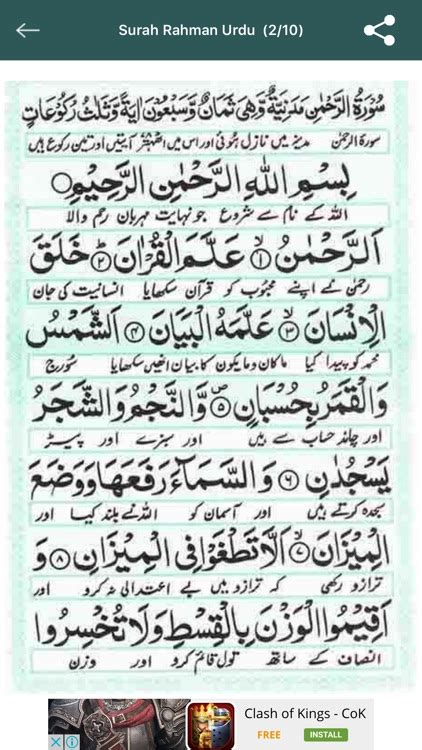 Surah Rahman Urdu (2/10)
سُوْرَةُ الرَّحْمٰنِ مَدَنِيَّةٌ وَّهِيَ ثَمَانٌ وَّسَبْعُوْنَ اٰيَةً وَّثَلٰثُ رُكُوْعَاتٍ
سورۃ الرحمٰن مدینہ میں نازل ہوئی اور اس میں اٹھہتر آیتیں اور تین رکوع ہیں
بِسْمِ اللّٰهِ الرَّحْمٰنِ الرَّحِيْمِ
اللہ کے نام سے شروع جو نہایت مہربان رحم والا
اَلرَّحْمٰنُ ۙ۝۱ عَلَّمَ الْقُرْاٰنَ ؕ۝۲ خَلَقَ
رحمٰن نے اپنے محبوب کو قرآن سکھایا انسانیت کی جان
الْاِنْسَانَ ۙ۝۳ عَلَّمَهُ الْبَيَانَ ۝۴ اَلشَّمْسُ
محمد کو پیدا کیا ماکان ومایکون کا بیان انھیں سکھایا سورج
وَالْقَمَرُ بِحُسْبَانٍ ۪۝۵ وَّالنَّجْمُ وَالشَّجَرُ
اور چاند حساب سے ہیں اور سبزے اور پیڑ
يَسْجُدٰنِ ۝۶ وَالسَّمَآءَ رَفَعَهَا وَوَضَعَ
سجدہ کرتے ہیں اور آسمان کو اللہ نے بلند کیا اور
الْمِيْزَانَ ۙ۝۷ اَلَّا تَطْغَوْا فِي الْمِيْزَانِ ۝۸ وَ
ترازو رکھی کہ ترازو میں بے اعتدالی نہ کرو اور
اَقِيْمُوا الْوَزْنَ بِالْقِسْطِ وَلَا تُخْسِرُوا
انصاف کے ساتھ تول قائم کرو اور وزن
Clash of Kings - CoK
FREE INSTALL